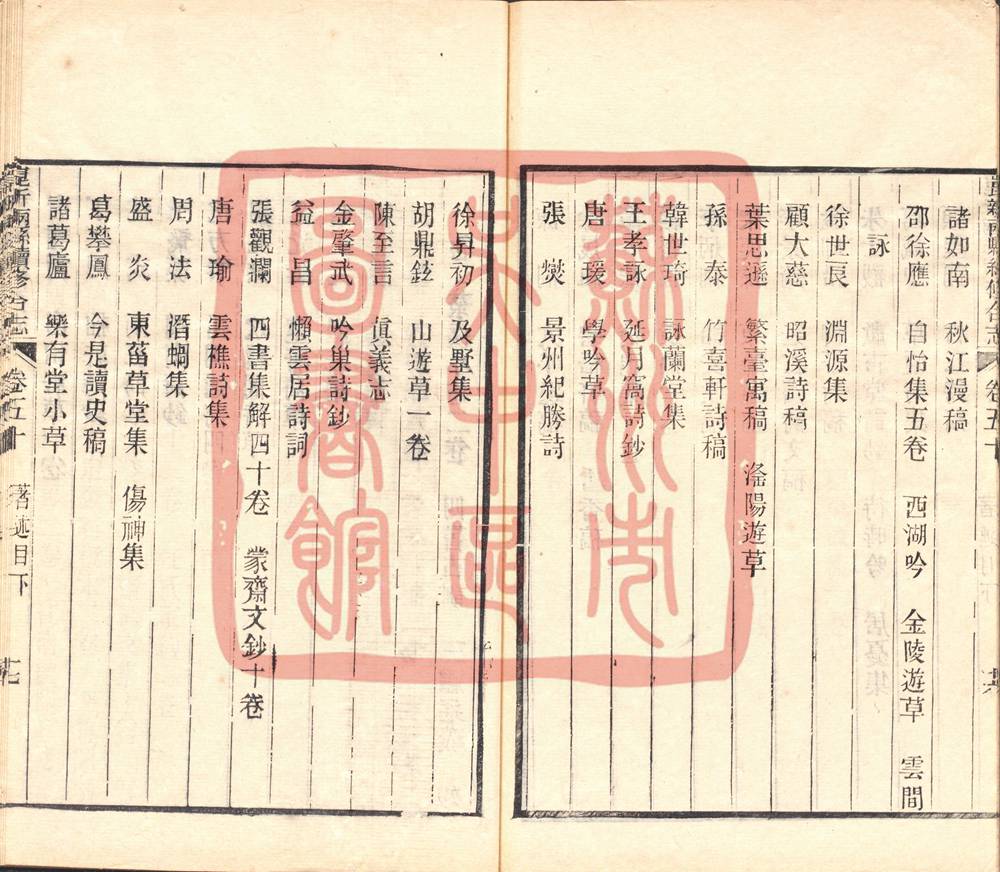 諸如南　秋江漫稿
邵徐應　自怡集五卷　西湖吟　金陵遊草　雲間
詠
徐世良　淵源集
顧大慈　昭溪詩稿
葉思遜　繁臺寓稿　滏陽遊草
孫　泰　竹喜軒詩稿
韓世琦　詠蘭堂集
王孝詠　延月窩詩鈔
唐　瑗　學吟草
張　爕　景州紀勝詩
徐昇初　及墅集
胡鼎鉉　山遊草一卷
陳至言　眞義志
金肇武　吟巢詩鈔
益　昌　懶雲居詩詞
張觀瀾　四書集解四十卷　蒙齋文鈔十卷
唐　瑜　雲樵詩集
周　法　潛蜩集
盛　炎　東葘草堂集　傷神集
葛攀鳳　今是讀史稿
諸葛廬　樂有堂小草
崑新兩縣續修合志　卷五十　著述目下
蘇州市
大中區
圖書館